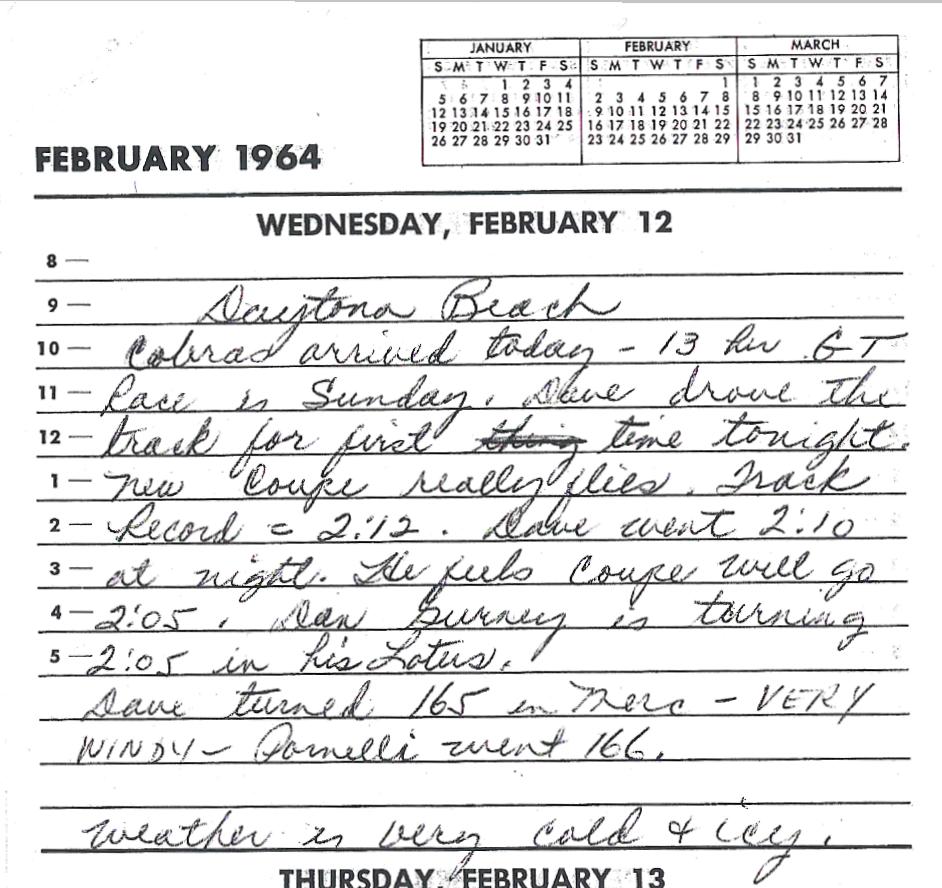 JANUARY FEBRUARY MARCH
S M T W T F S S M T W T F S S M T W T F S
1 2 3 4 1 1 2 3 4 5 6 7
5 6 7 8 9 10 11 2 3 4 5 6 7 8 8 9 10 11 12 13 14
12 13 14 15 16 17 18 9 10 11 12 13 14 15 15 16 17 18 19 20 21
19 20 21 22 23 24 25 16 17 18 19 20 21 22 22 23 24 25 26 27 28
26 27 28 29 30 31 23 24 25 26 27 28 29 29 30 31
FEBRUARY 1964
WEDNESDAY, FEBRUARY 12
8 —
9 — Daytona Beach
10 — Cobras arrived today - 13 hr GT
11 — Race is Sunday. Dave drove the
12 — track for first thing time tonight.
1 — New Coupe really flies. Track
2 — Record = 2:12. Dave went 2:10
3 — at night. He feels Coupe will go
4 — 2:05. Dan Gurney is turning
5 — 2:05 in his Lotus.
Dave turned 165 in Merc - VERY
WINDY - Parnelli went 166.
Weather is very cold & icy.
THURSDAY, FEBRUARY 13